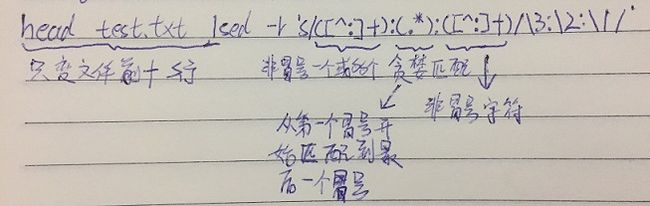 head test.txt |sed -r 's/([^:]+):(.*):([^:]+)/\3:\2:\1/'
只变文件前十行 非冒号一个或多个 贪婪匹配
非冒号字符
从第一个冒号开
始匹配到最
后一个冒号